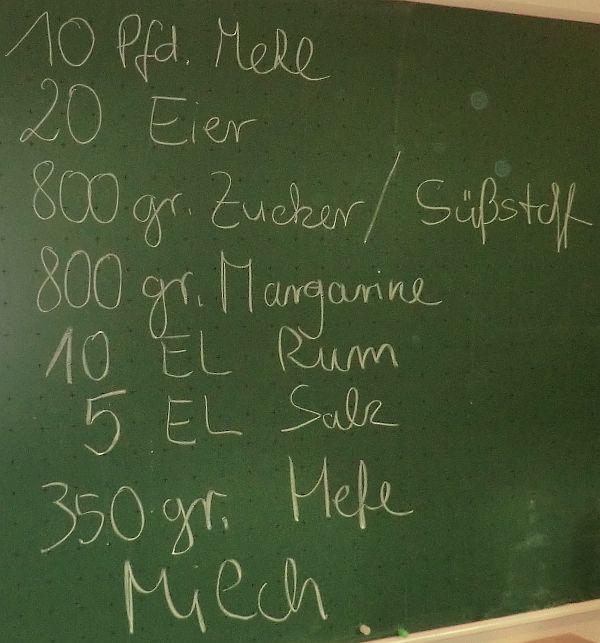 10 Pfd. Mehl
20 Eier
800 gr. Zucker / Süßstoff
800 gr. Margarine
10 EL Rum
5 EL Salz
350 gr. Hefe
Milch